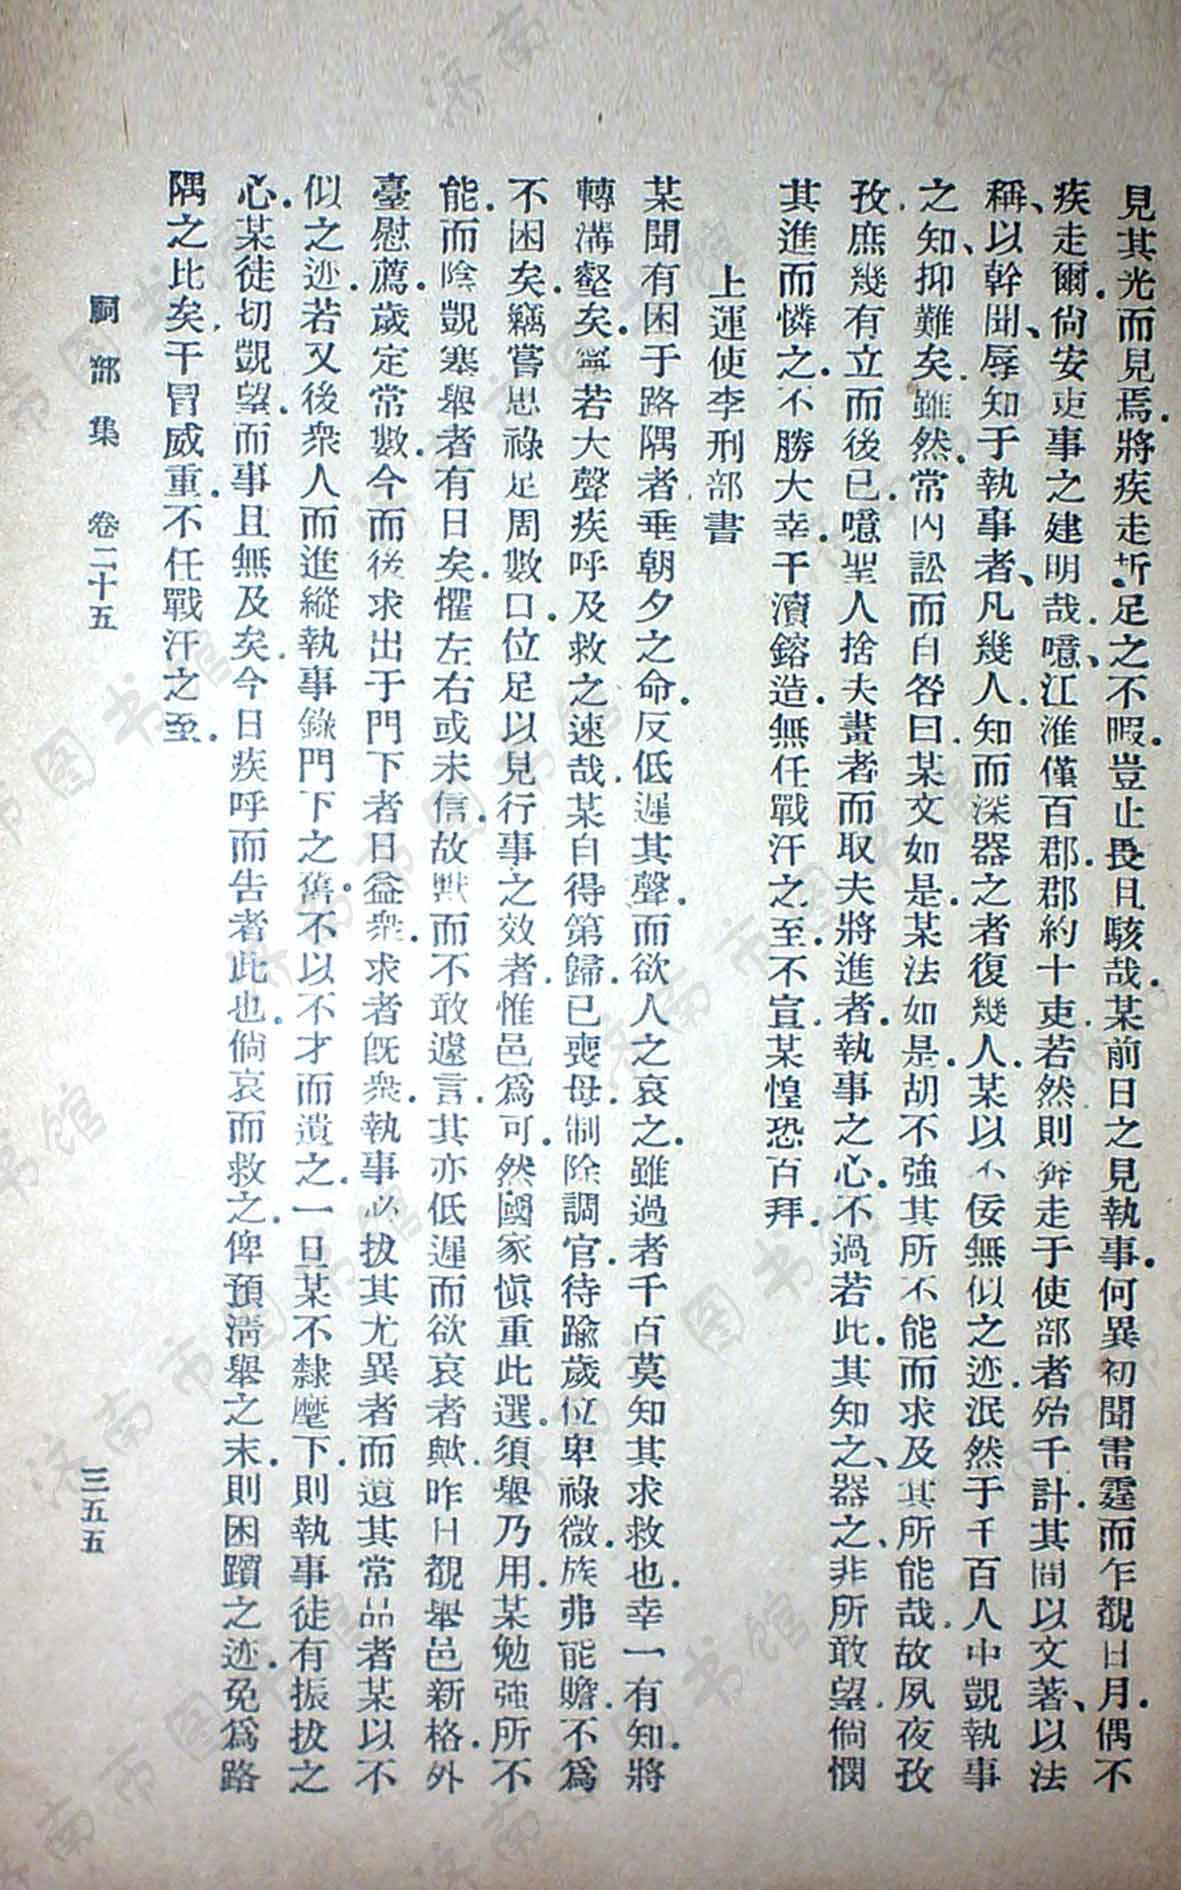 見其光而見焉.將疾走折足之不暇.豈止畏且駭哉.某前日之見執事.何異初聞雷霆而乍覩日月.偶不
疾走爾.尙安吏事之建明哉.噫、江淮僅百郡.郡約十吏.若然則奔走于使部者殆千計.其間以文著、以法
稱、以幹聞、辱知于執事者、凡幾人.知而深器之者復幾人.某以不佞無似之迹.泯然于千百人中.覬執事
之知、抑難矣.雖然.常內訟而自咎曰.某文如是.某法如是.胡不強其所不能而求及其所能哉.故夙夜孜
孜.庶幾有立而後已.噫聖人捨夫畫者而取夫將進者.執事之心.不過若此.其知之、器之、非所敢望.倘憫
其進而憐之.不勝大幸.干瀆鎔造.無任戰汗之至.不宣.某惶恐百拜.
上運使李刑部書
某聞有困于路隅者.垂朝夕之命.反低遲其聲.而欲人之哀之.雖過者千百莫知其求救也.幸一有知.將
轉溝壑矣.寧若大聲疾呼及救之速哉.某自得第歸.已喪母.制除調官.待踰歲.位卑祿微.族弗能贍.不爲
不困矣.竊嘗思祿足周數口.位足以見行事之效者.惟邑爲可.然國家愼重此選.須舉乃用.某勉強所不
能.而陰覬塞舉者有日矣.懼左右或未信.故默而不敢遽言.其亦低遲而欲哀者歟.昨日覩舉邑新格.外
臺慰薦.歲定常數.今而後求出于門下者日益衆.求者既衆.執事必拔其尤異者而遺其常品者.某以不
似之迹.若又後衆人而進.縱執事錄門下之舊.不以不才而遺之.一旦某不隸麾下.則執事徒有振拔之
心.某徒切覬望.而事且無及矣.今日疾呼而告者此也.倘哀而救之.俾預淸舉之末.則困躓之迹.免爲路
隅之比矣.干冒威重.不任戰汗之至.
祠部集 卷二十五
三五五